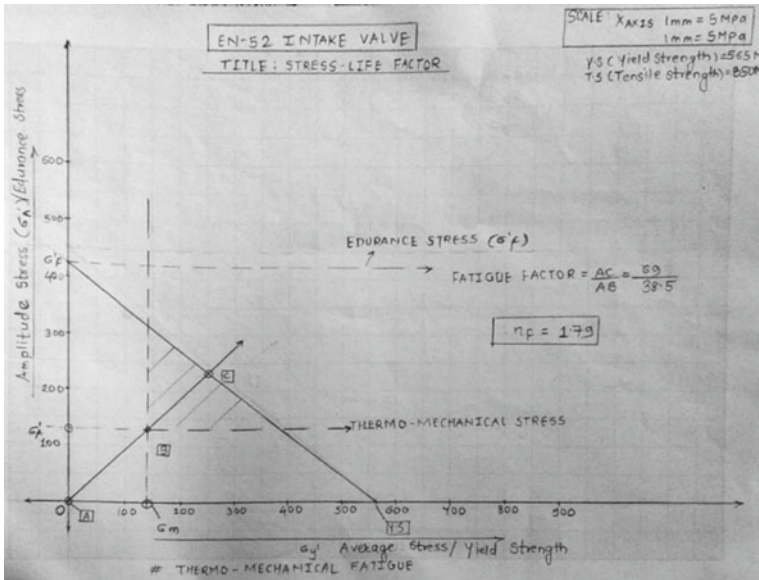 EN-52 INTAKE VALVE
TITLE: STRESS-LIFE FACTOR
SCALE: X AXIS 1mm = 5MPa
1mm = 5MPa
Y.S (Yield Strength) = 565 M
T.S (Tensile Strength) = 850
Amplitude Stress (σA') / Edurance Stress
600
500
σ'f
400
300
200
σA'
100
EDURANCE STRESS (σ'f)
FATIGUE FACTOR = AC/AB = 69/38.5
nF = 1.79
C
B
THERMO-MECHANICAL STRESS
O
A
100
200
300
400
500
600
700
800
900
σm
Y.S
σy' Average Stress / Yield Strength
# THERMO-MECHANICAL FATIGUE